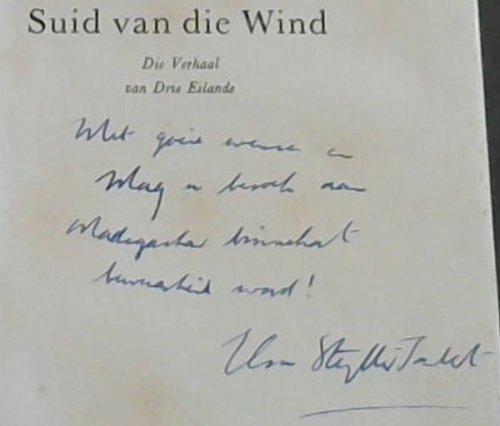 Suid van die Wind
Die Verhaal
van Drie Eilande
Met goeie wense en
Mag 'n besoek aan
Madagaskar binnekort
bewaarheid word!